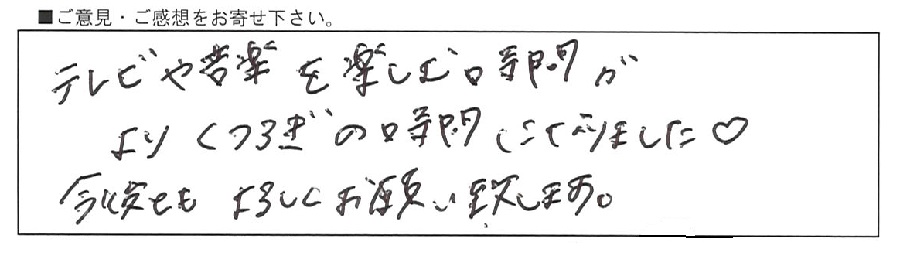 ■ご意見・ご感想をお寄せ下さい。
テレビや音楽を楽しむ時間が
よりくつろぎの時間になりました♡
今後とも よろしくお願い致します。